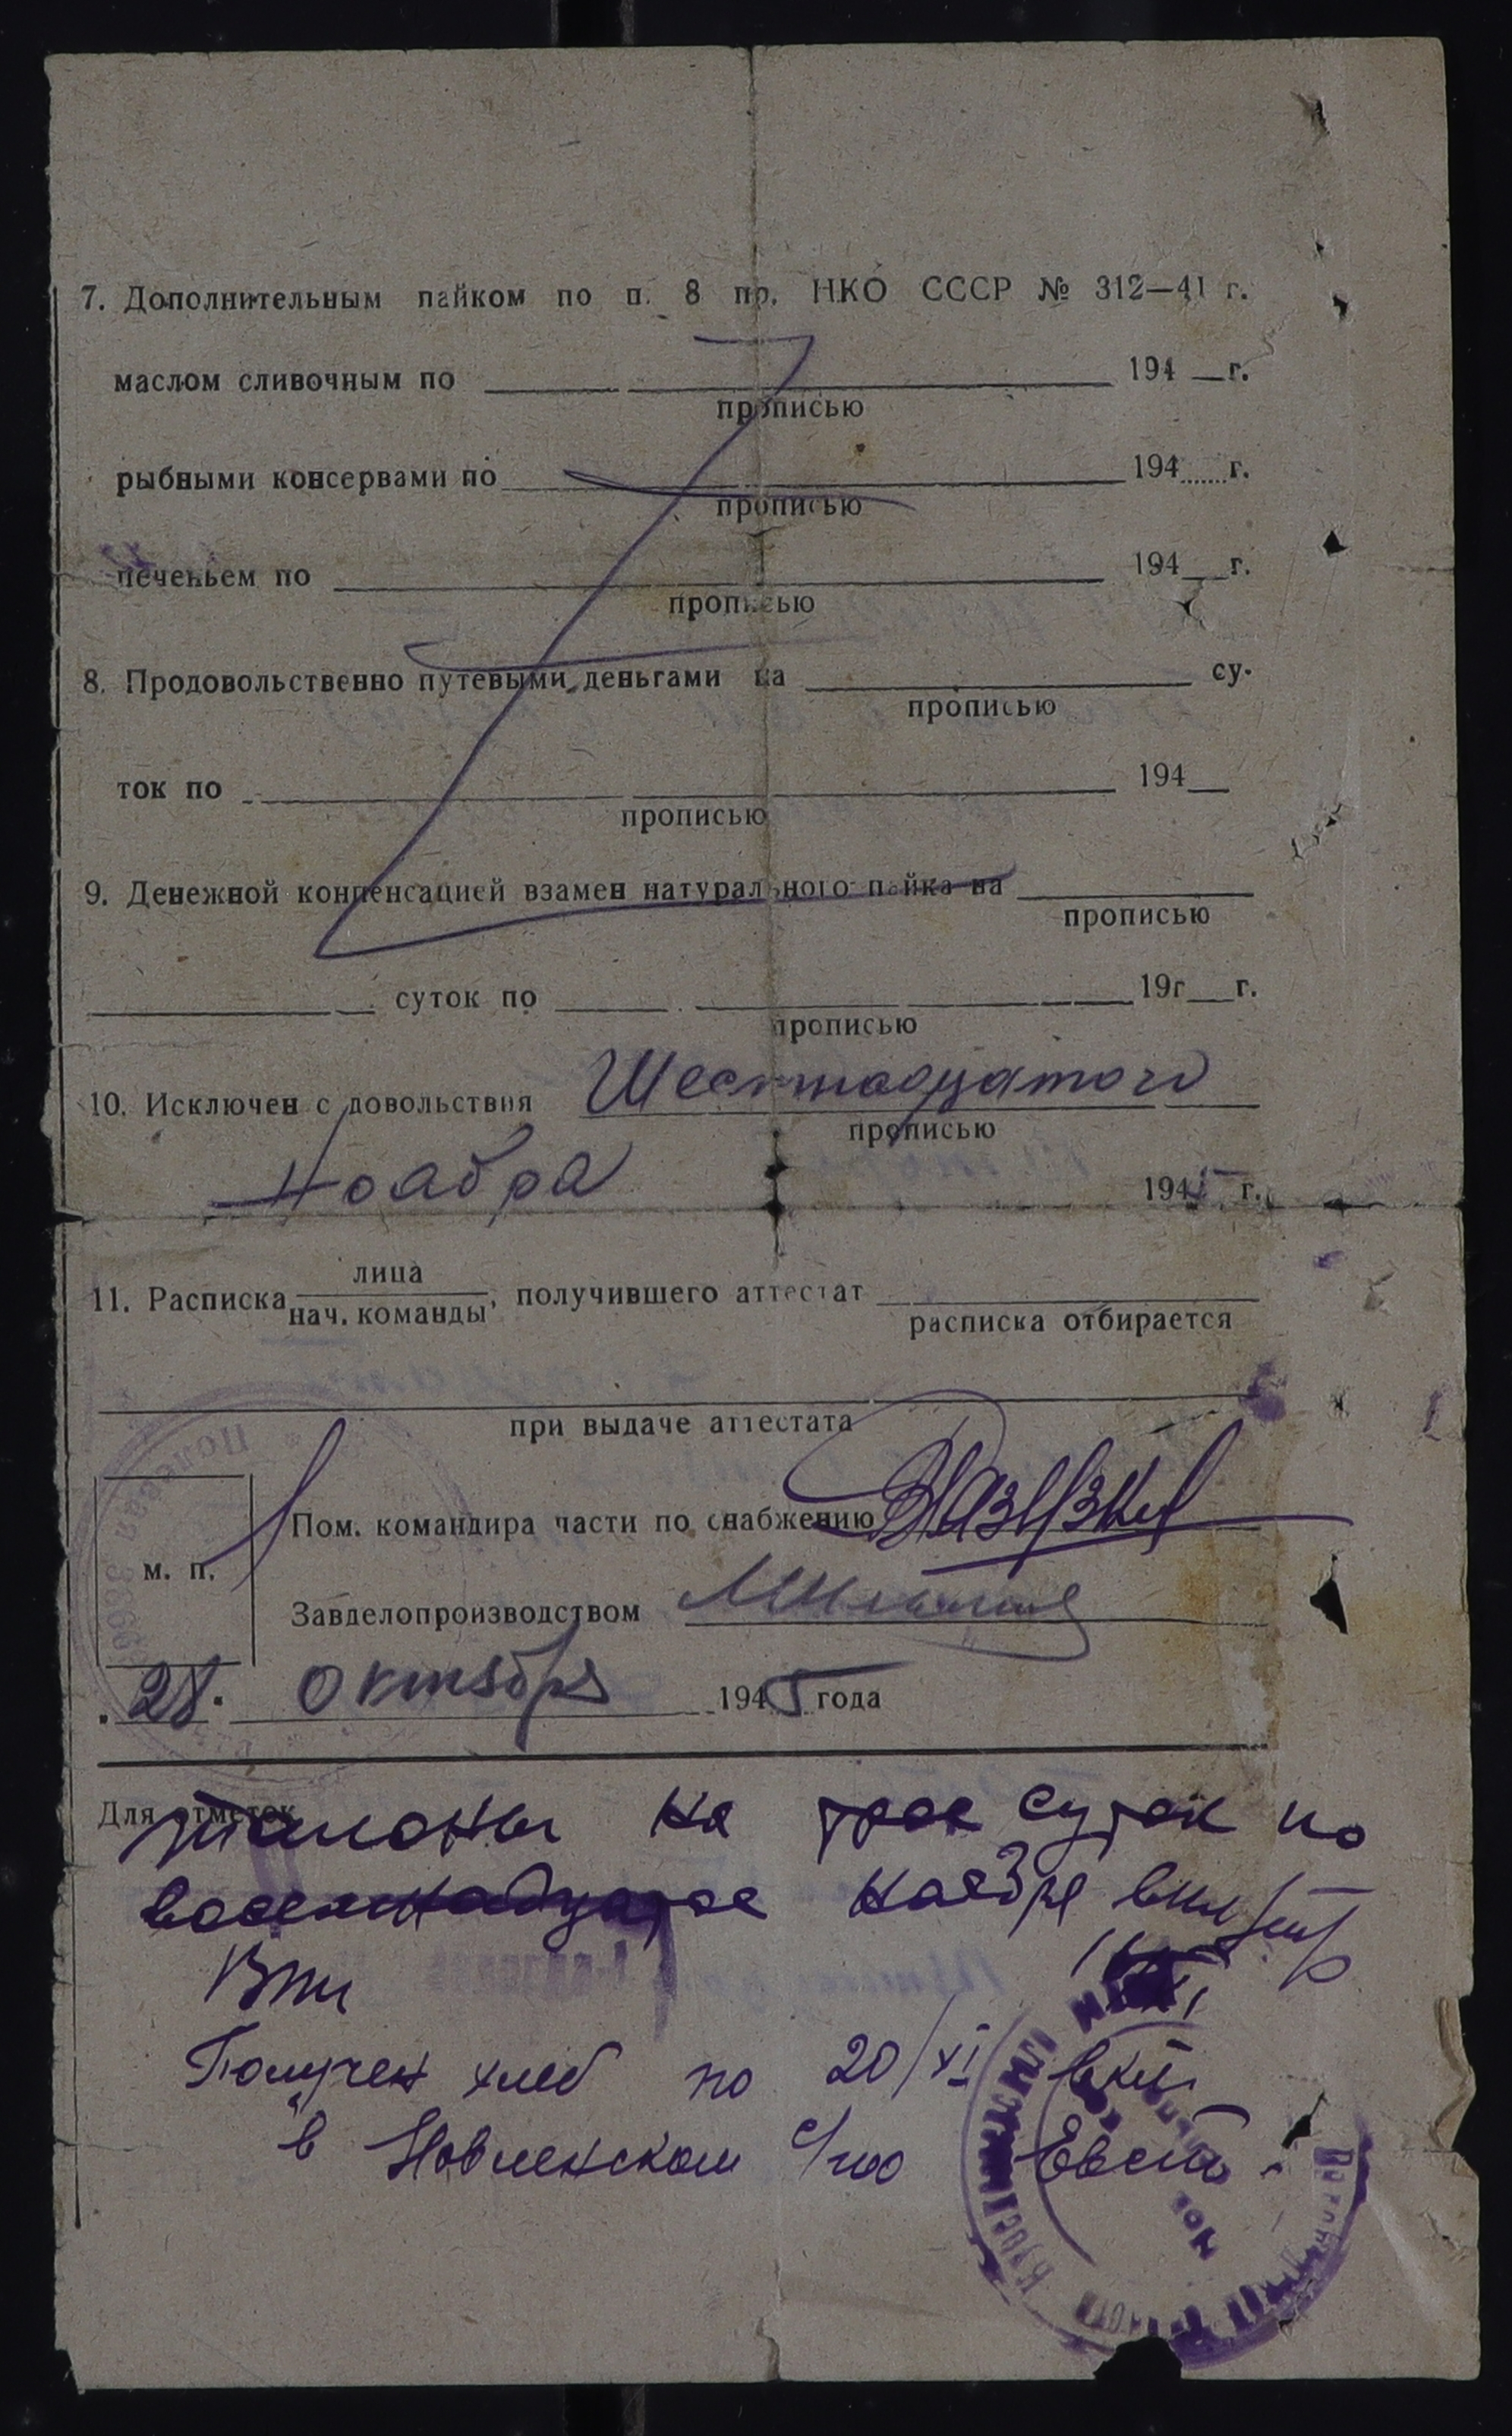 7. Дополнительным пайком по п. 8 пр. НКО СССР № 312—41 г.
маслом сливочным по 194 г.
прописью
рыбными консервами по 194 г.
прописью
печеньем по 194 г.
прописью
8. Продовольственно путевыми деньгами на су-
прописью
ток по 194
прописью
9. Денежной конпенсацией взамен натурального пайка на
прописью
суток по 19г г.
прописью
10. Исключен с довольствия Шестнадцатого
прописью
Ноября 1945 г.
лица
11. Расписка нач. команды, получившего аттестат
расписка отбирается
при выдаче аттестата
Пом. командира части по снабжению
м. п.
Завделопроизводством
28. октября 1945 года
Для отметок
Талоны на трое суток по
восемнадцатое ноября
Получен хлеб по 20/XI вкл.
в Новленском с/по
Полевая